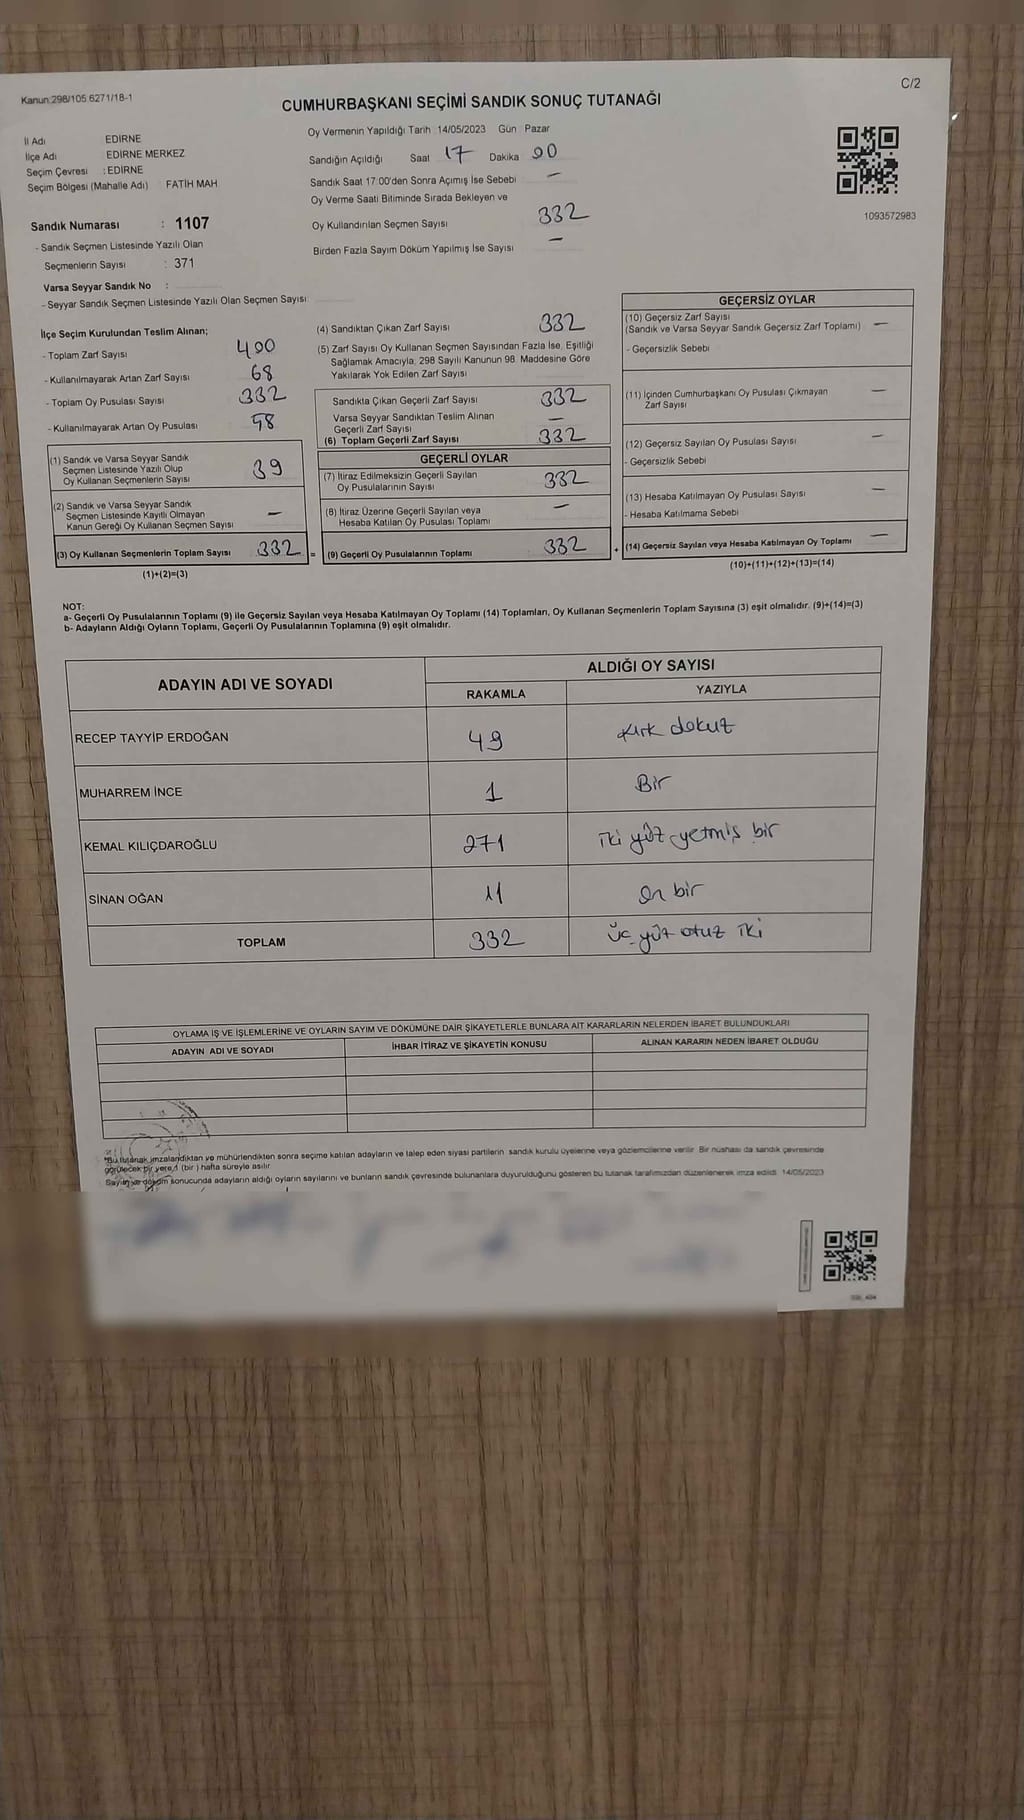 Kanun:298/105 6271/18-1
C/2
CUMHURBAŞKANI SEÇİMİ SANDIK SONUÇ TUTANAĞI
İl Adı EDİRNE
İlçe Adı EDİRNE MERKEZ
Seçim Çevresi : EDİRNE
Seçim Bölgesi (Mahalle Adı) FATİH MAH
Oy Vermenin Yapıldığı Tarih 14/05/2023 Gün Pazar
Sandığın Açıldığı Saat 17 Dakika 00
Sandık Saat 17:00'den Sonra Açımış İse Sebebi —
Oy Verme Saati Bitiminde Sırada Bekleyen ve
Oy Kullandırılan Seçmen Sayısı 332
Birden Fazla Sayım Döküm Yapılmış İse Sayısı —
1093572983
Sandık Numarası : 1107
- Sandık Seçmen Listesinde Yazılı Olan
Seçmenlerin Sayısı : 371
Varsa Seyyar Sandık No :
- Seyyar Sandık Seçmen Listesinde Yazılı Olan Seçmen Sayısı:
İlçe Seçim Kurulundan Teslim Alınan;
- Toplam Zarf Sayısı 400
- Kullanılmayarak Artan Zarf Sayısı 68
- Toplam Oy Pusulası Sayısı 332
- Kullanılmayarak Artan Oy Pusulası
(1) Sandık ve Varsa Seyyar Sandık
Seçmen Listesinde Yazılı Olup
Oy Kullanan Seçmenlerin Sayısı 39
(2) Sandık ve Varsa Seyyar Sandık
Seçmen Listesinde Kayıtlı Olmayan
Kanun Gereği Oy Kullanan Seçmen Sayısı —
(3) Oy Kullanan Seçmenlerin Toplam Sayısı 332 =
(1)+(2)=(3)
(4) Sandıktan Çıkan Zarf Sayısı 332
(5) Zarf Sayısı Oy Kullanan Seçmen Sayısından Fazla İse, Eşitliği
Sağlamak Amacıyla, 298 Sayılı Kanunun 98. Maddesine Göre
Yakılarak Yok Edilen Zarf Sayısı
Sandıkta Çıkan Geçerli Zarf Sayısı 332
Varsa Seyyar Sandıktan Teslim Alınan
Geçerli Zarf Sayısı —
(6) Toplam Geçerli Zarf Sayısı 332
GEÇERLİ OYLAR
(7) İtiraz Edilmeksizin Geçerli Sayılan
Oy Pusulalarının Sayısı 332
(8) İtiraz Üzerine Geçerli Sayılan veya
Hesaba Katılan Oy Pusulası Toplamı —
(9) Geçerli Oy Pusulalarının Toplamı 332 +
GEÇERSİZ OYLAR
(10) Geçersiz Zarf Sayısı
(Sandık ve Varsa Seyyar Sandık Geçersiz Zarf Toplamı) —
- Geçersizlik Sebebi
(11) İçinden Cumhurbaşkanı Oy Pusulası Çıkmayan
Zarf Sayısı —
(12) Geçersiz Sayılan Oy Pusulası Sayısı —
- Geçersizlik Sebebi
(13) Hesaba Katılmayan Oy Pusulası Sayısı —
- Hesaba Katılmama Sebebi
(14) Geçersiz Sayılan veya Hesaba Katılmayan Oy Toplamı —
(10)+(11)+(12)+(13)=(14)
NOT:
a- Geçerli Oy Pusulalarının Toplamı (9) ile Geçersiz Sayılan veya Hesaba Katılmayan Oy Toplamı (14) Toplamları, Oy Kullanan Seçmenlerin Toplam Sayısına (3) eşit olmalıdır. (9)+(14)=(3)
b- Adayların Aldığı Oyların Toplamı, Geçerli Oy Pusulalarının Toplamına (9) eşit olmalıdır.
ADAYIN ADI VE SOYADI ALDIĞI OY SAYISI
RAKAMLA YAZIYLA
RECEP TAYYİP ERDOĞAN 49 Kırk dokuz
MUHARREM İNCE 1 Bir
KEMAL KILIÇDAROĞLU 271 iki yüz yetmiş bir
SİNAN OĞAN 11 On bir
TOPLAM 332 üç yüz otuz iki
OYLAMA İŞ VE İŞLEMLERİNE VE OYLARIN SAYIM VE DÖKÜMÜNE DAİR ŞİKAYETLERLE BUNLARA AİT KARARLARIN NELERDEN İBARET BULUNDUKLARI
ADAYIN ADI VE SOYADI İHBAR İTİRAZ VE ŞİKAYETİN KONUSU ALINAN KARARIN NEDEN İBARET OLDUĞU
*Bu tutanak imzalandıktan ve mühürlendikten sonra seçime katılan adayların ve talep eden siyasi partilerin sandık kurulu üyelerine veya gözlemcilerine verilir. Bir nüshası da sandık çevresinde
görülecek bir yere 1 (bir ) hafta süreyle asılır.
Sayım ve döküm sonucunda adayların aldığı oyların sayılarını ve bunların sandık çevresinde bulunanlara duyurulduğunu gösteren bu tutanak tarafımızdan düzenlenerek imza edildi. 14/05/2023